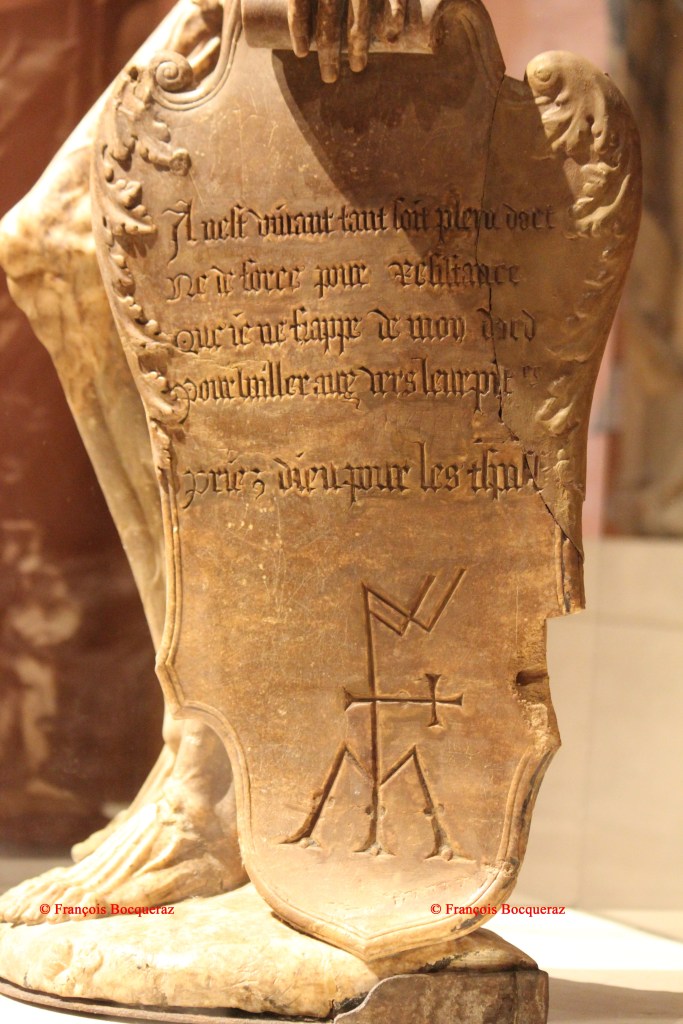 Il nest vivant tant soit plein dart
Ne de force pour Resistance
Que ie ne frappe de mon dard
Pour bailler aux vers leur
priez dieu pour les
© François Bocqueraz © François Bocqueraz